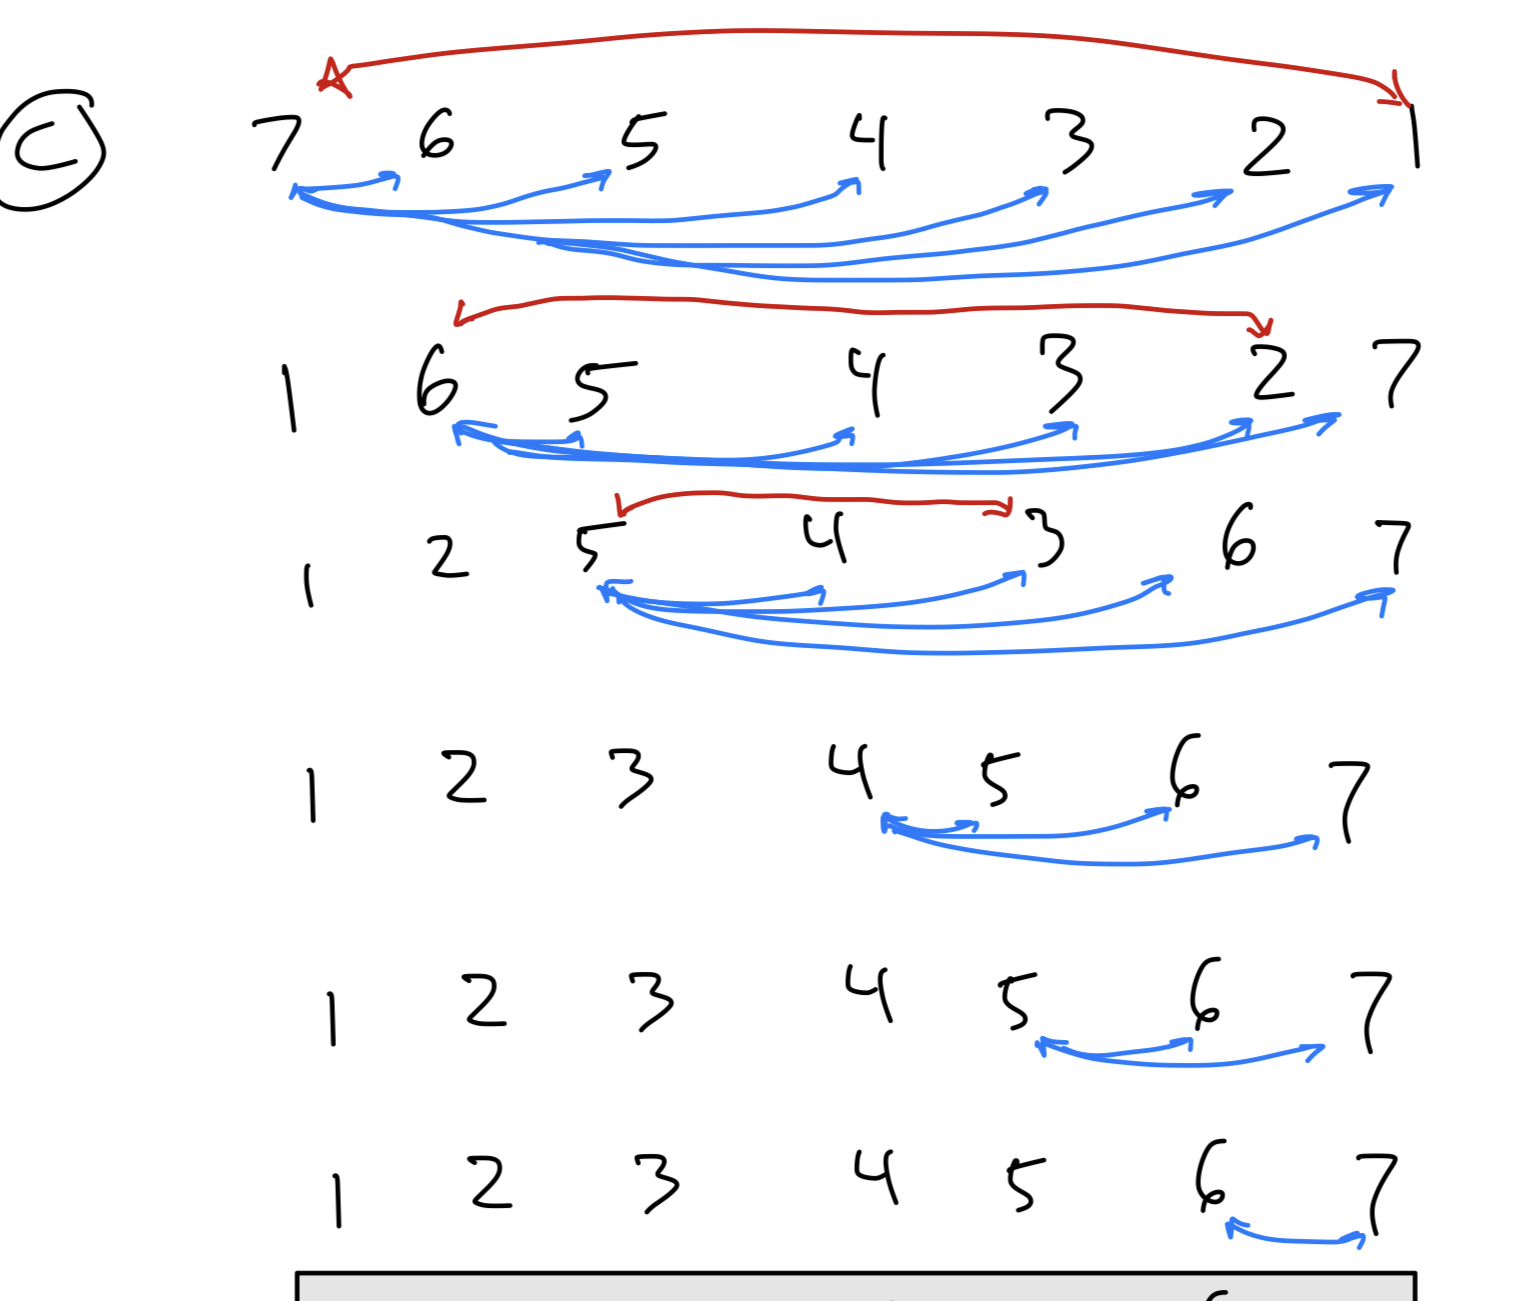 C 7 6 5 4 3 2 1
1 6 5 4 3 2 7
1 2 5 4 3 6 7
1 2 3 4 5 6 7
1 2 3 4 5 6 7
1 2 3 4 5 6 7